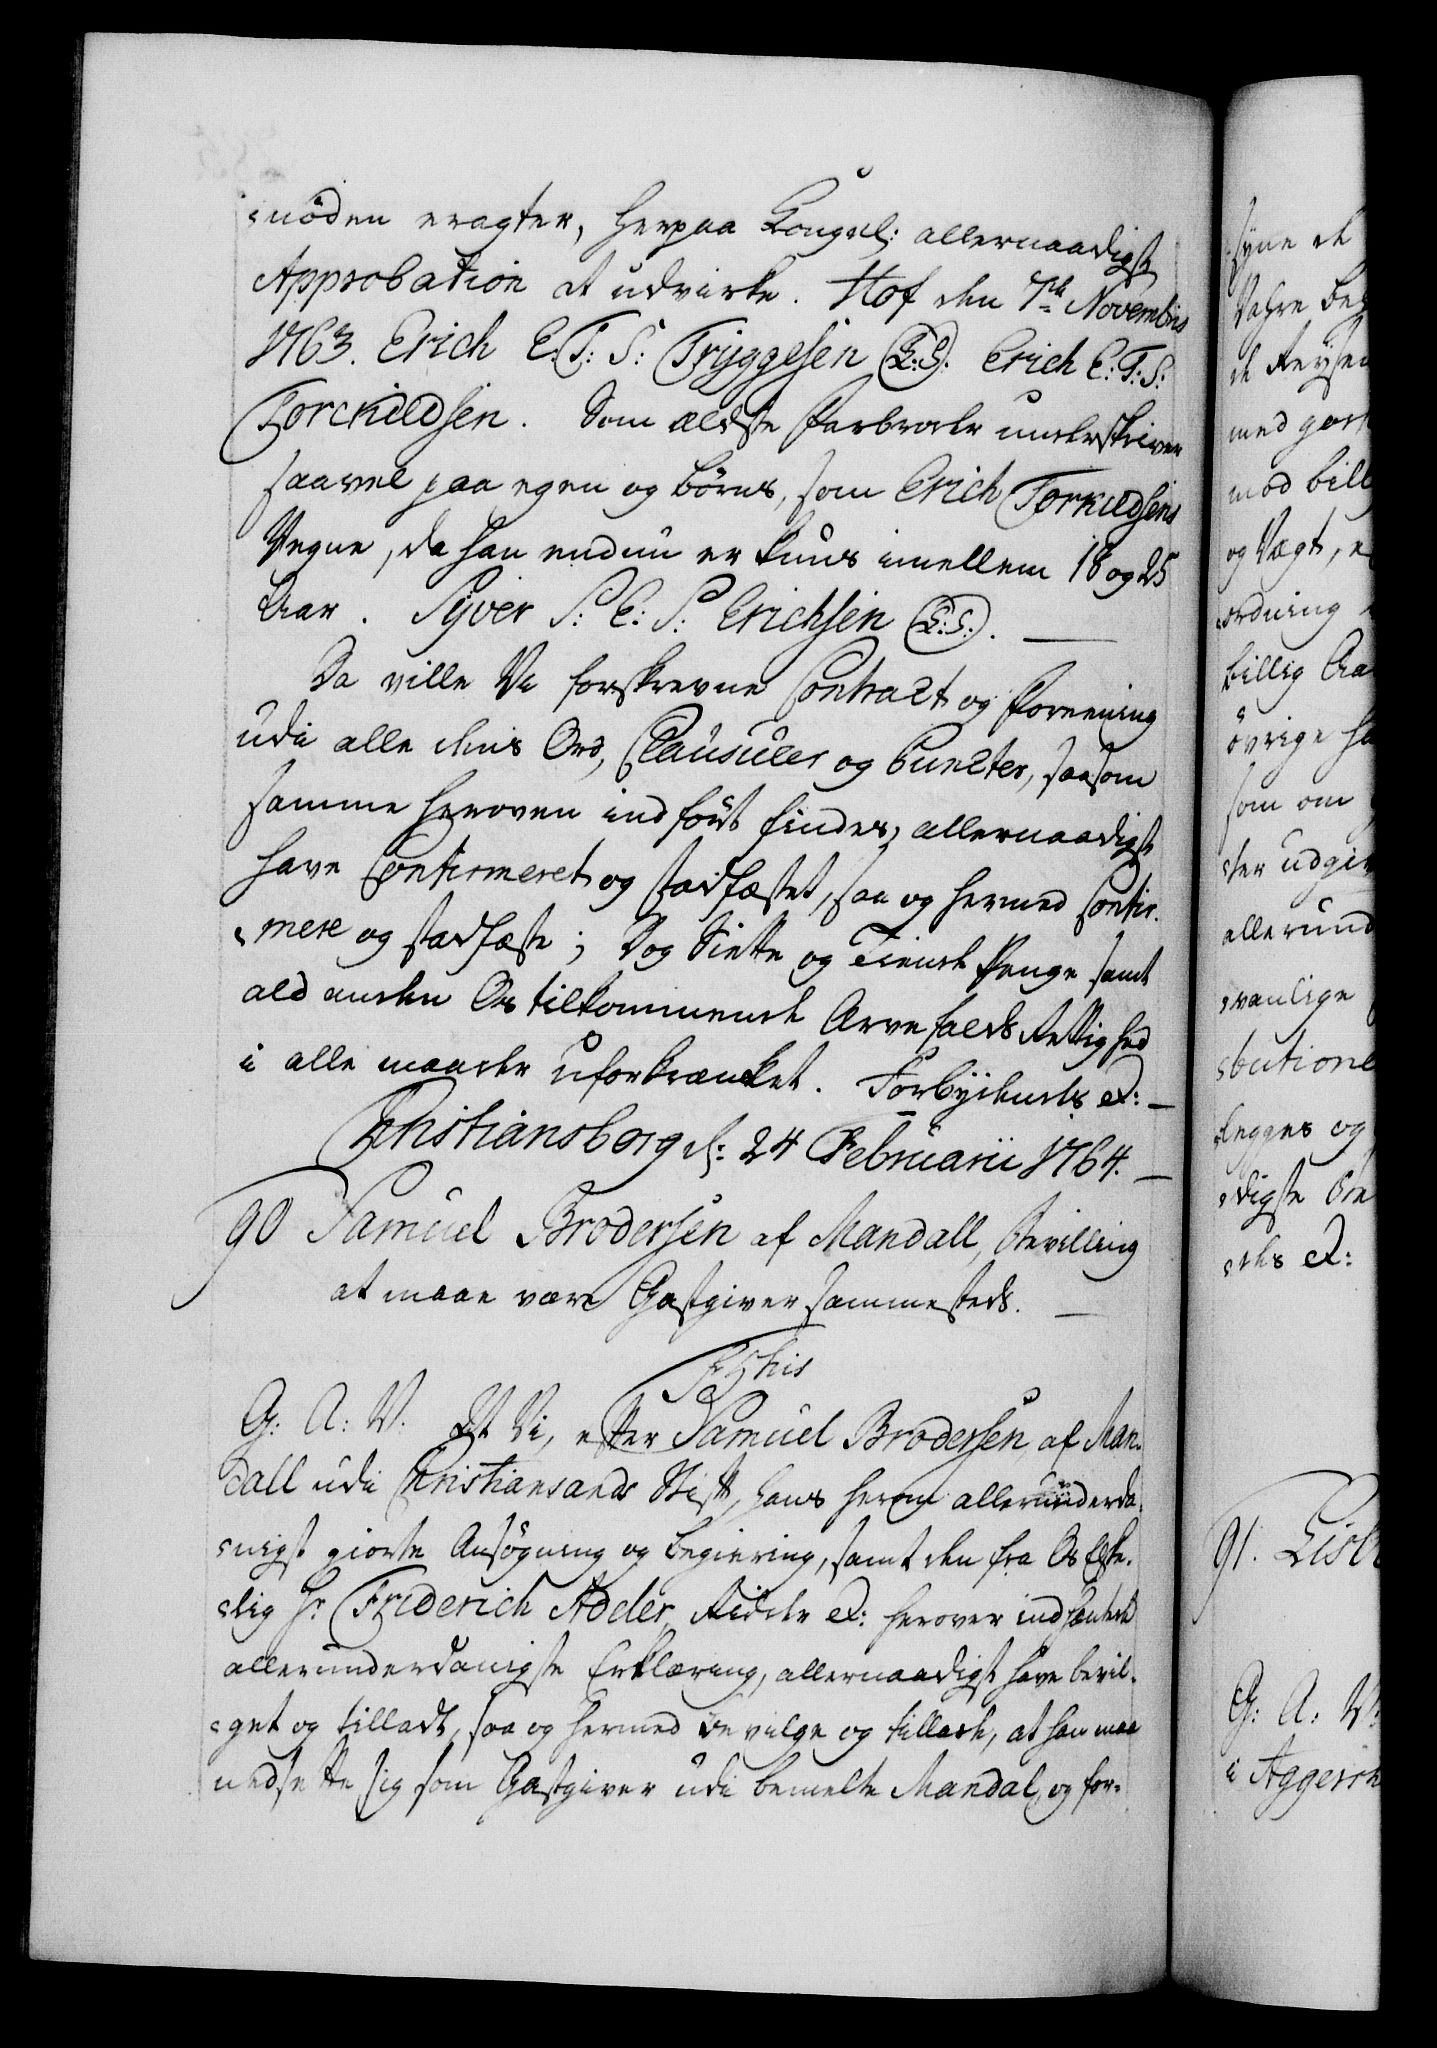 nöden eragter, herpaa Kongel: allernaadigst
Approbation at udvirke. Hof den 7de Novembris
1763. Erich E. T: S: Tryggesen (L:S). Erich E: T: S:
Torckildsen. Som ældste Farbroder underskriver
saavel paa egen og Børns, som Erich Torkildsens
Vegne, da han endnu er kuns imellem 18 og 25
Aar. Syver S: E: S: Erichsen (L:S:).
Da ville Vi forskrevne Contract og Foreening
udi alle dens Ord, Clausuler og Puncter, saasom
samme heroven indført findes, allernaadigst
have Confirmeret og stadfæstet, saa og hermed Confir-
mere og stadfæste; Dog Siette og Tiende Penge samt
ald anden Os tilkommende Arvefalds Rettighed
i alle maader uforkrænket. Forbydendes etc:
Christiansborg d: 24 Februarii 1764.
90 Samuel Brodersen af Mandall, Bevilling
at maae være Gastgiver sammesteds.
G: A: V. At Vi, efter Samuel Brodersen, af Man-
dall udi Christiansands Stift, hans herom allerunderda-
nigst giorte Ansøgning og begiering, samt den fra Os Elske-
lig Hr Friderich Adeler, Ridder etc: herover indhentede
allerunderdanigste Erklæring, allernaadigst have bevil-
get og tilladt, saa og hermed bevilge og tillade, at han maa
nedsette sig som Gastgiver udi bemelte Mandal, og for-
syne de
de Reysen
med
mod bill
og Vægt, e
ordning
billig Aa
øvrige ha
som om
ter udgiv
allerund
vanlige
butione
legges og
digste
des etc:
91. Lisb
G: A: V:
i Aggersh